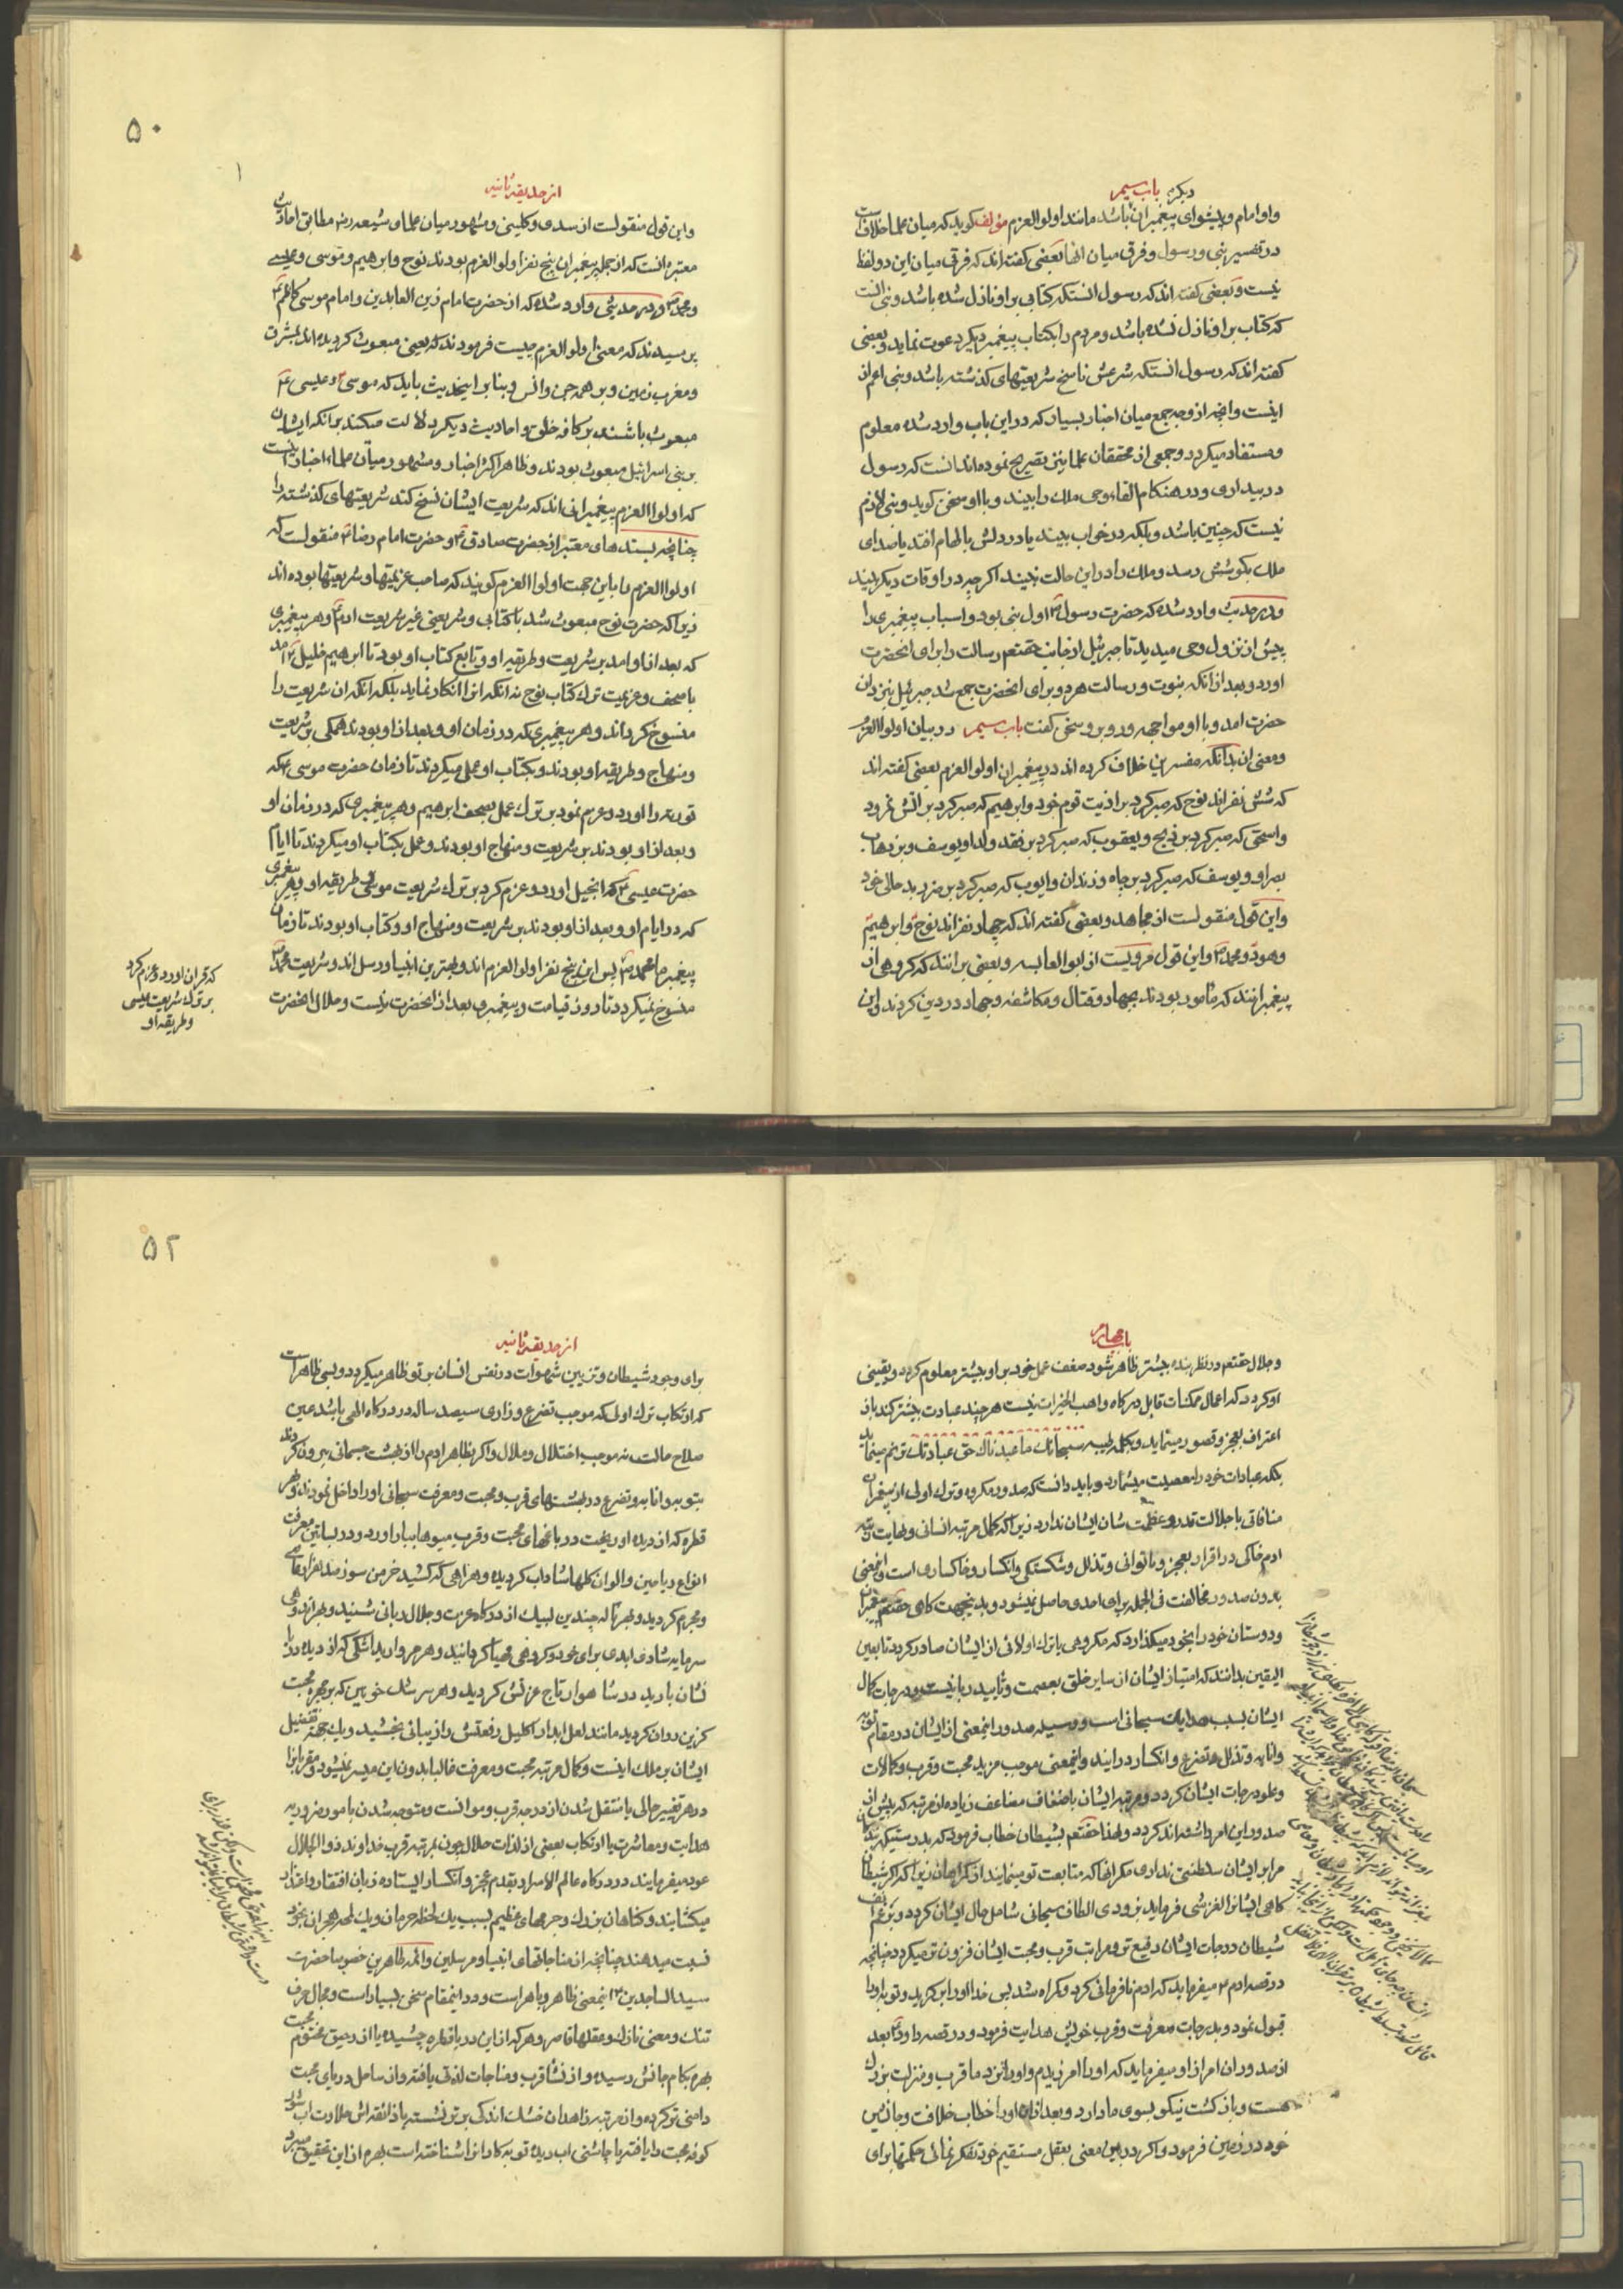 دیکره باب سیم
و او امام و پیشوای پیغمبران باشد مانند اولوالعزم مؤلف کوید که میان علما خلاف است
در تفسیر نبی و رسول و فرق میان انها بعضی کفته اند که فرقی میان این دو لفظ
نیست و بعضی کفته اند که رسول انستکه کتابی بر او نازل شده باشد و نبی انست
که کتاب بر او نازل نشده باشد و مردم را بکتاب پیغمبر دیکر دعوت نماید و بعضی
کفته اند که رسول انستکه شرعش ناسخ شریعتهای کذشته باشد و نبی اعم از
اینست و انچه از وجه جمع میان اخبار بسیار که در این باب وارد شده معلوم
و مستفاد میکردد و جمعی از محققان علما نیز تصریح نموده اند انست که رسول
در بیداری و در هنکام القاء وحی ملک را ببیند و با او سخن کوید و نبی لازم
نیست که چنین باشد و بلکه در خواب ببیند یا در دلش بالهام افتد یا صدای
ملک بکوشش رسد و ملک را در این حالت نبیند اکرچه در اوقات دیکر ببیند
و در حدیث وارد شده که حضرت رسول ص اول نبی بود و اسباب پیغمبری را
پیش از نزول وحی میدید تا جبرئیل از جانب حقتعم رسالت را برای انحضرت
اورد و بعد از انکه نبوت و رسالت هر دو برای انحضرت جمع شد جبرئیل بنزد ان
حضرت امد و با او مواجهه و روبرو سخن کفت باب سیم در بیان اولوالعزم
و معنی ان بدانکه مفسرین خلاف کرده اند در پیغمبران اولوالعزم بعضی کفته اند
که شش نفر اند نوح که صبر کرد بر اذیت قوم خود و ابرهیم که صبر کرد بر اتش نمرود
و اسحق که صبر کرد بر ذبح و یعقوب که صبر کرد بر فقد ولد او یوسف و بر ذهاب
بصر او و یوسف که صبر کرد بر چاه و زندان و ایوب که صبر کرد بر ضر و بد حالی خود
و این قول منقولست از مجاهد و بعضی کفته اند که چهار نفر اند نوح و ابرهیم
و هود و محمد ص و این قول مرویست از ابوالعالیه و بعضی بر انند که کروهی از
پیغمبرانند که مأمور بودند بجهاد و قتال و مکاشفه و جهاد در دین کردند و این
۵۰
۱
از حدیقه ثانیه
و این قول منقولست از سدی و کلینی و مشهور میان علماء شیعه رض مطابق احادیث
معتبره انست که از جمله پیغمبران پنج نفر اولوالعزم بودند نوح و ابرهیم و موسی و عیسی
و محمد ص و در حدیثی وارد شده که از حضرت امام زین العابدین و امام موسی کاظم ع
پرسیدند که معنی اولوالعزم چیست فرمودند که یعنی مبعوث کردیده اند بمشرق
و مغرب زمین و بر همه جن و انس و بنا بر اینحدیث باید که موسی ع و عیسی ع
مبعوث باشند بر کافه خلق و احادیث دیکر دلالت میکند بر انکه ایشان
بر بنی اسرائیل مبعوث بودند و ظاهر اکثر اخبار و مشهور میان علماء اخبار انست
که اولواالعزم پیغمبرانی اند که شریعت ایشان نسخ کند شریعتهای کذشته را
چنانچه بسندهای معتبر از حضرت صادق ع و حضرت امام رضا ع منقولست که
اولواالعزم را باین جهت اولوالعزم کویند که صاحب عزیمتها و شریعتها بوده اند
زیرا که حضرت نوح مبعوث شد با کتابی و شریعتی غیر شریعت ادم ع و هر پیغمبری
که بعد از او امد بر شریعت و طریقه او و تابع کتاب او بود تا ابرهیم خلیل ع امد
با صحف و عزیمت ترک کتاب نوح نه انکه انرا انکار نماید بلکه انکه ان شریعت را
منسوخ کرداند و هر پیغمبری که در زمان او و بعد از او بودند همکی بر شریعت
و منهاج و طریقه او بودند و بکتاب او عمل میکردند تا زمان حضرت موسی ع که
توریة را اورد و عزم نمود بر ترک عمل بصحف ابرهیم و هر پیغمبری که در زمان او
و بعد از او بودند بر شریعت و منهاج او بودند و عمل بکتاب او میکردند تا ایام
حضرت عیسی ع که انجیل اورد و عزم کرد بر ترک شریعت موسی و طریقه او و هر پیغمبری
که در ایام او و بعد از او بودند بر شریعت و منهاج او و کتاب او بودند تا زمان
پیغمبر ما محمد ص پس این پنج نفر اولوالعزم اند و بهترین انبیا و رسل اند و شریعت محمد ص
منسوخ نمیکردد تا روز قیامت و پیغمبری بعد از انحضرت نیست و حلال انحضرت
که قران اورد و عزم کرد
بر ترک شریعت عیسی
و طریقه او
باب چهارم
و جلال حقتعم در نظر بنده بیشتر ظاهر شود ضعف عمل خود بر او بیشتر معلوم کردد و یقینی
او کردد که اعمال ممکنات قابل درکاه واهب الخیرات نیست هر چند عبادت بیشتر کند باز
اعتراف بعجز و قصور مینماید و بکلمه طیبه سبحانک ما عبدناک حق عبادتک ترنم مینماید
بلکه عبادات خود را معصیت میشمارد و باید دانست که صدور مکروه و ترک اولی از پیغمبران
منافاتی با جلالت قدر و عظمت شان ایشان ندارد زیرا که کمال مرتبه انسانی و نهایت رتبه
ادم خاکی در اقرار بعجز و ناتوانی و تذلل و شکستکی و انکسار و خاکساری است و اینمعنی
بدون صدور مخالفت فی الجمله برای احدی حاصل نمیشود و بدینجهت کاهی حقتعم پیغمبران
و دوستان خود را بخود میکذارد که مکروهی یا ترک اولائی از ایشان صادر کردد تا بعین
الیقین بدانند که امتیاز ایشان از سایر خلق بعصمت و تایید ربانیست و درجات کمال
ایشان بسبب هدایت سبحانی است و وسیله صدور اینمعنی از ایشان در مقام توبه
و انابه و تذلل و تضرع و انکسار در ایند و اینمعنی موجب مزید محبت و قرب و کمالات
و علو درجات ایشان کردد و مرتبه ایشان باضعاف مضاعف زیاده از مرتبه که پیش از
صدور این امر داشته اند کردد و لهذا حقتعم بشیطان خطاب فرمود که بدرستیکه بندکان
مرا بر ایشان سلطنتی نداری مکر انها که متابعت تو مینمایند از کمراهان زیرا که اکر شیطان
کاهی ایشانرا لغزشی فرماید بزودی الطاف سبحانی شامل حال ایشان کردد و برغم انف
شیطان درجات ایشان رفیع تر و مراتب قرب و محبت ایشان فزون تر میکردد چنانچه
در قصه ادم ع میفرماید که ادم نافرمانی کرد و کمراه شد پس خدا او را بر کزید و توبه او را
قبول نمود و بدرجات معرفت و قرب خویش هدایت فرمود و در قصه داود ع بعد
از صدور ان امر از او میفرماید که او را امرزیدم و او را نزد ما قرب و منزلت بزرک
هست و باز کشت نیکو بسوی ما دارد و بعد از ان او را خطاب خلافت و جانشینی
خود در زمین فرمود و اکر در این معنی بعقل مستقیم خود تفکر نمائی حکمتها برای
۵۲
از حدیقه ثانیه
برای وجود شیطان و تزیین شهوات در نفس انسان بر تو ظاهر میکردد و بسی ظاهر است
که ارتکاب ترک اولی که موجب تضرع و زاری سیصد ساله در درکاه الهی باشد عین
صلاح حالست نه موجب اختلال و ملال و اکر بظاهر ادم را از بهشت جسمانی بیرون کردند
بتوبه و انابه و تضرع در بهشتهای قرب و محبت و معرفت سبحانی او را داخل نمودند و هر
قطره که از دیده او ریخت در باغهای محبت و قرب میوها ببار اورد و در بساتین معرفت
انواع ریاحین و الوان کلها شاداب کردیده و هر اهی که کشید خرمن سوز صد هزار عاصی
و مجرم کردید و بهر ناله چندین لبیک از درکاه عزت و جلال ربانی شنید و بهر اندوهی
سرمایه شادی ابدی برای خود و کروهی مهیا کردانید و هر مروارید اشکی که از دیده
نشان بارید در شاهوار تاج عزتش کردید و هر سرشک خونین که بر چهره محبت
کزین روان کردید مانند لعل ابدار اکلیل رفعتش را زیبائی بخشید و یک جهة تفضیل
ایشان بر ملک اینست و کمال مرتبه محبت و معرفت غالبا بدون این میسر نمیشود و مقربانرا
در هر تغییر حالی یا منتقل شدن از درجه قرب و موانست و متوجه شدن بامور ضروریه
هدایت و معاشرت یا ارتکاب بعضی از لذات حلال چون بمرتبه قرب خداوند ذوالجلال
عود میفرمایند در درکاه عالم الاسرار بقدم عجز و انکسار ایستاده زبان افتقار و اعتذار
میکشایند و کناهان بزرک و جرمهای عظیم بسبب یک لحظه حرمان و یک لمحه هجران بخود
نسبت میدهند چنانچه از مناجاتهای انبیا و مرسلین و ائمه طاهرین خصوصا حضرت
سید الساجدین ع اینمعنی ظاهر و باهر است و در اینمقام سخن بسیار است و مجال حرف
تنک و معنی نازک و عقلها قاصر و هر که از این دریا قطره چشیده یا از رحیق مختوم محبت
بهره بکام جانش رسیده و از نشأ قرب و مناجات لذتی یافته و از ساحل دریای محبت
دامنی تر کرده و از مرتبه زاهدان خشک اندکی برتر نشسته یا ذائقه اش حلاوت اب شور
کوفه محبت را یافته یا چاشنی اب دیده توبه کارانرا شناخته است بهره از این تحقیق میبرد